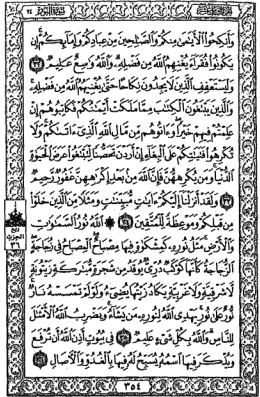 وَأَنكِحُوا۟ ٱلْأَيَـٰمَىٰ مِنكُمْ وَٱلصَّـٰلِحِينَ مِنْ عِبَادِكُمْ وَإِمَآئِكُمْ إِن
يَكُونُوا۟ فُقَرَآءَ يُغْنِهِمُ ٱللَّهُ مِن فَضْلِهِۦ وَٱللَّهُ وَٰسِعٌ عَلِيمٌ ٣٢
وَلْيَسْتَعْفِفِ ٱلَّذِينَ لَا يَجِدُونَ نِكَاحًا حَتَّىٰ يُغْنِيَهُمُ ٱللَّهُ مِن فَضْلِهِۦ
وَٱلَّذِينَ يَبْتَغُونَ ٱلْكِتَـٰبَ مِمَّا مَلَكَتْ أَيْمَـٰنُكُمْ فَكَاتِبُوهُمْ إِنْ
عَلِمْتُمْ فِيهِمْ خَيْرًا وَءَاتُوهُم مِّن مَّالِ ٱللَّهِ ٱلَّذِىٓ ءَاتَىٰكُمْ وَلَا
تُكْرِهُوا۟ فَتَيَـٰتِكُمْ عَلَى ٱلْبِغَآءِ إِنْ أَرَدْنَ تَحَصُّنًا لِّتَبْتَغُوا۟ عَرَضَ ٱلْحَيَوٰةِ
ٱلدُّنْيَا وَمَن يُكْرِههُّنَّ فَإِنَّ ٱللَّهَ مِنۢ بَعْدِ إِكْرَٰهِهِنَّ غَفُورٌ رَّحِيمٌ
٣٣ وَلَقَدْ أَنزَلْنَآ إِلَيْكُمْ ءَايَـٰتٍ مُّبَيِّنَـٰتٍ وَمَثَلًا مِّنَ ٱلَّذِينَ خَلَوْا۟
مِن قَبْلِكُمْ وَمَوْعِظَةً لِّلْمُتَّقِينَ ٣٤ ٱللَّهُ نُورُ ٱلسَّمَـٰوَٰتِ
وَٱلْأَرْضِ مَثَلُ نُورِهِۦ كَمِشْكَوٰةٍ فِيهَا مِصْبَاحٌ ٱلْمِصْبَاحُ فِى زُجَاجَةٍ
ٱلزُّجَاجَةُ كَأَنَّهَا كَوْكَبٌ دُرِّىٌّ يُوقَدُ مِن شَجَرَةٍ مُّبَـٰرَكَةٍ زَيْتُونَةٍ
لَّا شَرْقِيَّةٍ وَلَا غَرْبِيَّةٍ يَكَادُ زَيْتُهَا يُضِىٓءُ وَلَوْ لَمْ تَمْسَسْهُ نَارٌ
نُّورٌ عَلَىٰ نُورٍ يَهْدِى ٱللَّهُ لِنُورِهِۦ مَن يَشَآءُ وَيَضْرِبُ ٱللَّهُ ٱلْأَمْثَـٰلَ
لِلنَّاسِ وَٱللَّهُ بِكُلِّ شَىْءٍ عَلِيمٌ ٣٥ فِى بُيُوتٍ أَذِنَ ٱللَّهُ أَن تُرْفَعَ
وَيُذْكَرَ فِيهَا ٱسْمُهُۥ يُسَبِّحُ لَهُۥ فِيهَا بِٱلْغُدُوِّ وَٱلْـَٔاصَالِ ٣٦
٣٥٤